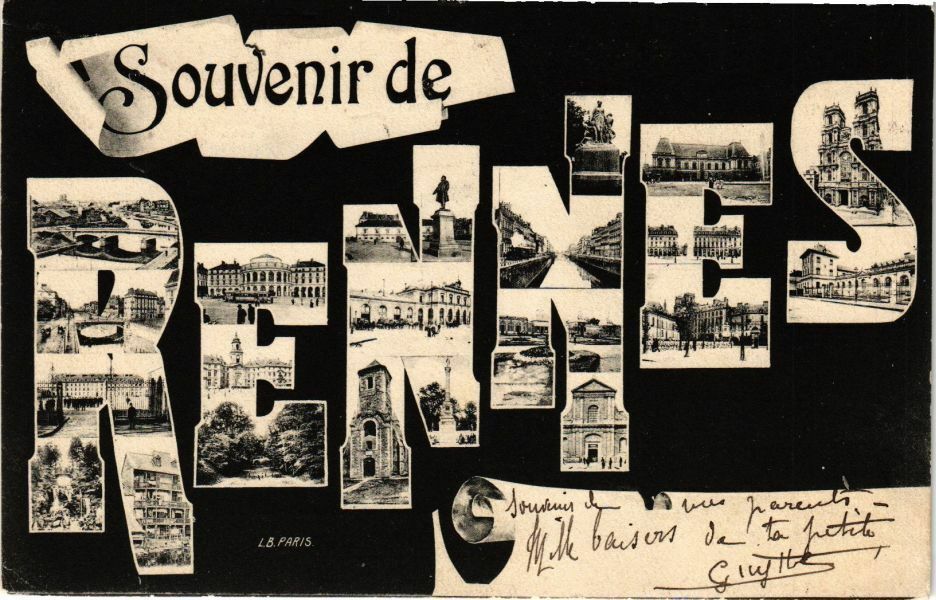 Souvenir de
RENNES
L.B. PARIS.
Souvenir de mes parents –
Mille baisers de ta petite